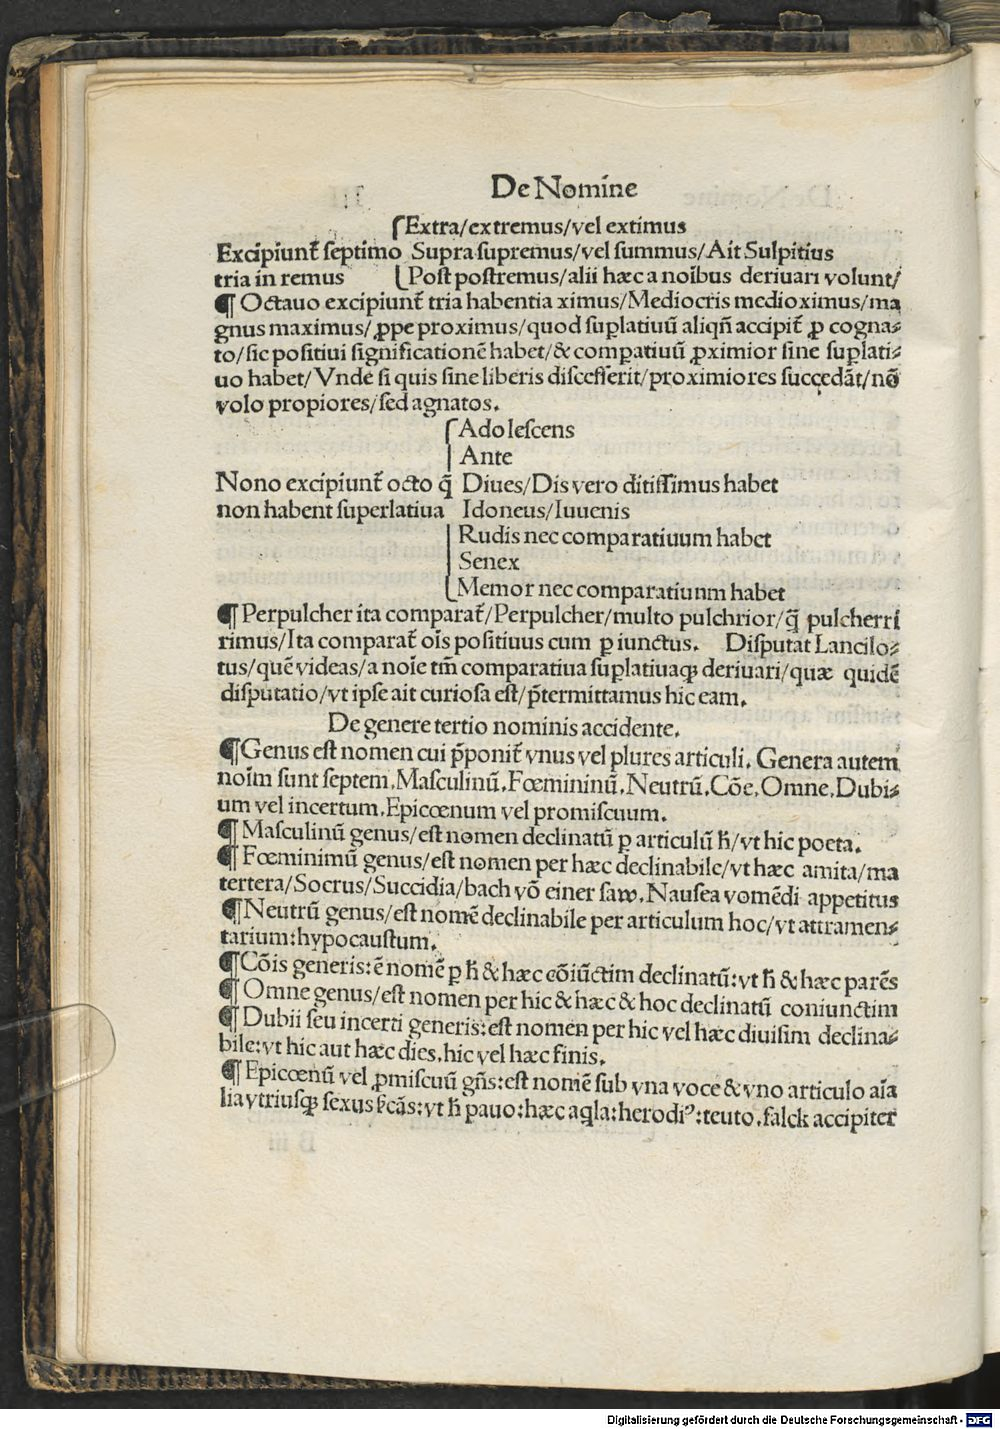 De Nomine
⌈Extra/extremus/vel extimus
Excipiunt᷑ septimo Supra supremus/vel summus/Ait Sulpitius
tria in remus ⌊Post postremus/alii hæc a noı̄bus deriuari volunt/
¶ Octauo excipiunt᷑ tria habentia ximus/Mediocris medioximus/ma
gnus maximus/ꝓpe proximus/quod suꝑlatiuū aliqñ accipit᷑ ꝓ cogna⸗
to/sic positiui significationē habet/& comꝑatiuū ꝓximior sine suꝑlati⸗
uo habet/Vnde si quis sine liberis discesserit/proximiores succedāt/nō
volo propiores/sed agnatos.
⌈Adolescens
| Ante
Nono excipiunt᷑ octo q̄ Diues/Dis vero ditissimus habet
non habent superlatiua Idoneus/Iuuenis
| Rudis nec comparatiuum habet
| Senex
⌊Memor nec comparatiunm habet
¶ Perpulcher ita comparat᷑/Perpulcher/multo pulchrior/q̄ pulcherri
rimus/Ita comparat᷑ oı̄s positiuus cum ꝑ iunctus. Disputat Lancilo⸗
tus/quē videas/a noı̄e tm̄ comparatiua suꝑlatiuaqꝫ deriuari/quæ quidē
disputatio/vt ipse ait curiosa est/p̄termittamus hic eam.
De genere tertio nominis accidente.
¶Genus est nomen cui p̄ponit᷑ vnus vel plures articuli. Genera autem
noı̄m sunt septem. Masculinū. Fœmininū. Neutrū. Cōe. Omne. Dubi⸗
um vel incertum. Epicœnum vel promiscuum.
¶ Masculinū genus/est nomen declinatū ꝑ articulū h̄/vt hic poeta.
¶ Fœminimū genus/est nomen per hæc declinabile/vt hæc amita/ma
tertera/Socrus/Succidia/bach vō einer saw. Nausea vomēdi appetitus
¶Neutrū genus/est nomē declinabile per articulum hoc/vt attramen⸗
tarium:hypocaustum.
¶Cōis generis:ē nomē ꝑ h̄ & hæc cōiūctim declinatū:vt h̄ & hæc parēs
¶ Omne genus/est nomen per hic & hæc & hoc declinatū coniunctim
¶ Dubii seu incerti generis:est nomen per hic vel hæc diuisim declina⸗
bile:vt hic aut hæc dies.hic vel hæc finis.
¶ Epicœnū vel ꝓmiscuū gn̄s:est nomē sub vna voce & vno articulo aı̄a
lia vtriusqꝫ sexus sīcās:vt h̄ pauo:hæc aq̄la:herodiꝰ:teuto.falck accipiter
Digitalisierung gefördert durch die Deutsche Forschungsgemeinschaft - DFG